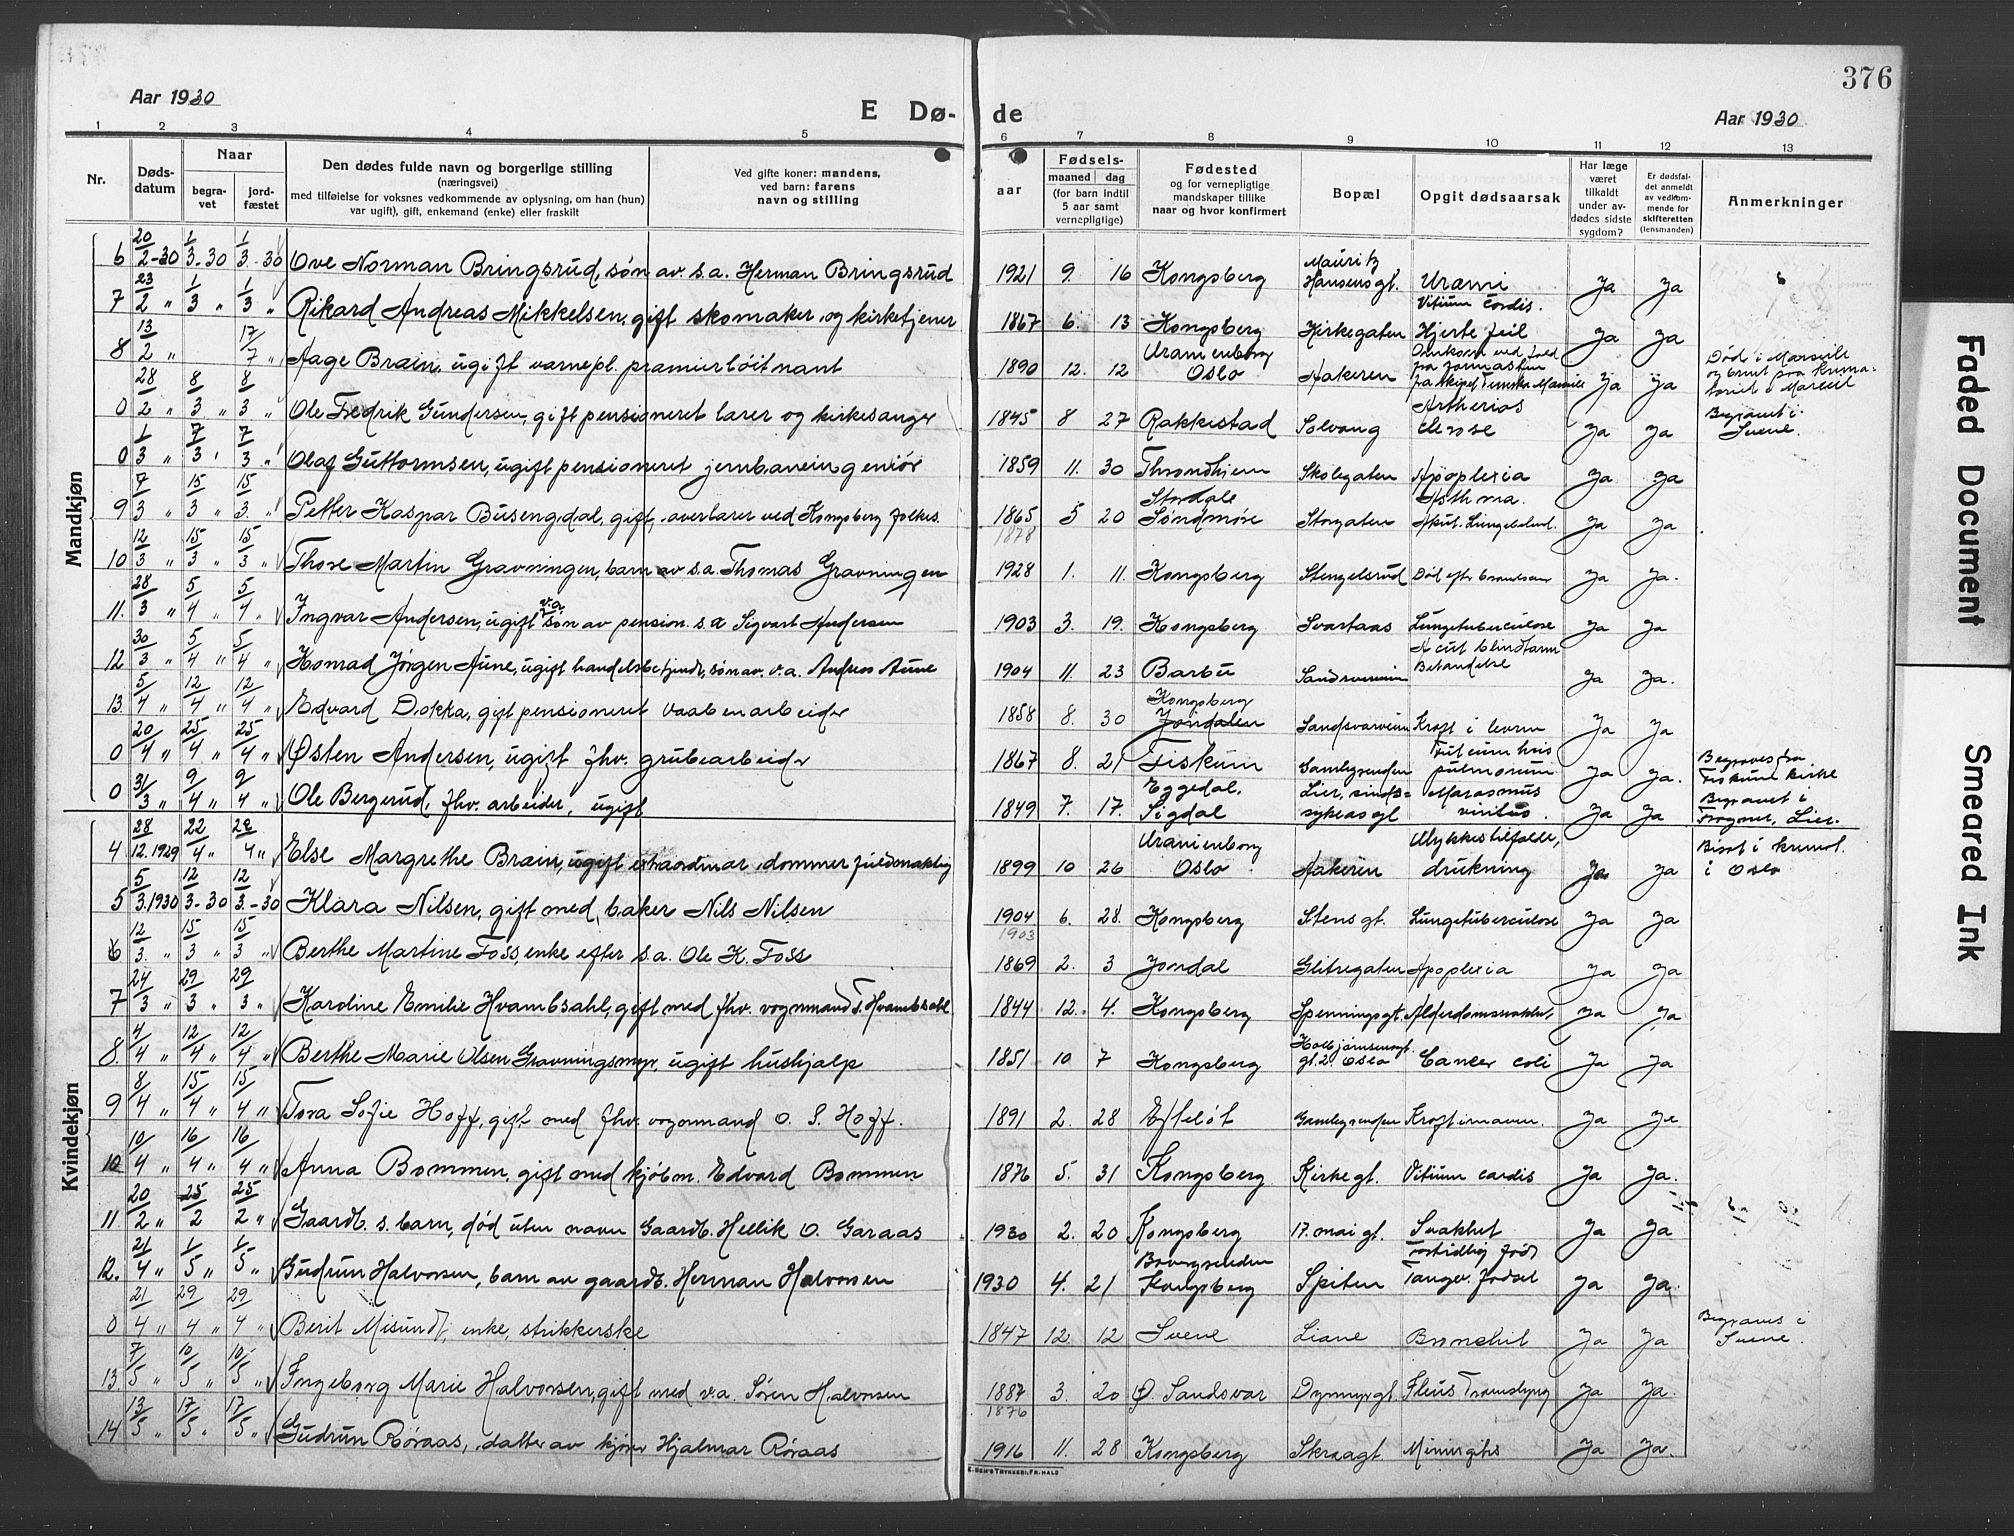 376
Aar 1930
E Dø-
de
Aar 1930
1 2 3 4 5 6 7 8 9 10 11 12 13
Nr.
Døds-
datum
Naar
begra-
vet
jord-
fæstet
Den dødes fulde navn og borgerlige stilling
(næringsvei)
med tilføielse for voksnes vedkommende av oplysning, om han (hun)
var ugift), gift, enkemand (enke) eller fraskilt
Ved gifte koner: mandens,
ved barn: farens
navn og stilling
Fødsels-
aar
maaned
dag
(for barn indtil
5 aar samt
vernepligtige)
Fødested
og for vernepligtige
mandskaper tillike
naar og hvor konfirmert
Bopæl
Opgit dødsaarsak
Har læge
været
tilkaldt
under av-
dødes sidste
sygdom?
Er dødsfal-
det anmeldt
av vedkom-
mende for
skifteretten
(lensmanden)
Anmerkninger
Mandkjøn
6 20/2-30 1/3-30 1/3-30 Ove Norman Bringsrud, søn av s.a. Herman Bringsrud 1921 9. 16 Kongsberg Mauritz Hansens gt. Urämi Ja Ja
7 23/2 " 1/3 " 1/3 " Rikard Andreas Mikkelsen, gift skomaker og kirketjener 1867 6. 13 Kongsberg Kirkegaten Vitium Cordis. Hjertefeil Ja Ja
8 13/2 " 17/7 " Aage Brain, ugift varnepl. premierløitnant 1890 12. 12 Uranienborg Oslo Aakeren Omkom ved fald fra Ja Ja Død i Marseille
0 28/2 " 8/3 " 8/3 " Ole Fredrik Gundersen, gift pensioneret lærer og kirkesanger 1845 8 27 Rakkestad Solvang Artherios clerose Ja Ja Begravet i Svene.
0 1/3 " 7/3 " 7/3 " Olaf Guttormsen, ugift pensioneret jernbaneingeniör 1859 11. 30 Throndhjem Skolegaten Apoplexia Ja Ja
9 7/3 " 15/3 " 15/3 " Petter Kaspar Busengdal, gift, overlærer ved Kongsberg folkes. 1865 5 20 Stordale Søndmøre Storgaten Asthma. Akut. Ja Ja
1878
10 12/3 " 15/3 " 15/3 " Thore Martin Gravningen, barn av s.a. Thomas Gravningen 1928 1. 11. Kongsberg Stengelsrud Død efter Ja Ja.
11. 28/3 " 5/4 " 5/4 " Ingvar Andersen, ugift v.a. søn av pension. s.a Sigvart Andersen 1903 3. 19. Kongsberg Svartaas Lungetuberculose Ja Ja
12 30/3 " 5/4 " 5/4 " Konrad Jørgen Aune, ugift handelsbetjent, søn av. v.a. Andreas Aune 1904 11. 23 Barbu Sandsverveien Acut blindtarm Betændelse Ja Ja.
13. 5/4 " 12/4 " 12/4 " Edvard Dokka, gift pensioneret Vaabenarbeider 1858 8. 30 Kongsberg Jondalen Sandsværveien Kræft i leveren Ja Ja
0 20/4 " 25/4 " 25/4 " Østen Andersen, ugift fhv. grubearbeider 1867 8. 21 Fiskum Gamlegrenden pulmonum Ja Ja. Begraves fra Fiskum Kirke
0 31/3 " 9/4 " 9/4 " Ole Bergerud, fhv. arbeider, ugift 1849 7. 17. Eggedal, Sigdal Lier, sinds= sykeasyl Marasmus Ja Ja Begravet i Frogner, Lier.
Kvindekjøn
4 28/12.1929 22/4 " 22/4 " Else Margrethe Brain, ugift extraordinær dommerfuldmæktig 1899 10 26 Uranienborg Oslo Aakeren Ulykkestilfælde, drukning Ja Ja Bisat i kremat. i Oslo
5 5/3.1930 12/3-30 12/3-30 Klara Nilsen, gift med baker Nils Nilsen 1904 6. 28. Kongsberg Stens gt. Lungetuberculose Ja Ja
1903
6 12/3. " 15/3 " 15/3 " Berthe Martine Foss, enke efter s.a. Ole K. Foss 1869 2. 3 Jondal Glitregaten Apoplexia Ja Ja
7 24/3 " 29/3 " 29/3 " Karoline Emilie Hvambsahl, gift med fhv. vognmand T. Hvambsahl 1844 12. 4. Kongsberg Spenningsgt. Alderdomssvakhet, Ja Ja
8. 4/4 " 12/4 " 12/4 " Berthe Marie Olsen Gravningsmyr, ugift hushjælp 1851 10 7 Kongsberg Oslo Cancer coli Ja Ja
9 8/4 " 15/4 " 15/4 " Tora Sofie Hoff, gift med fhv. vognmand O. S. Hoff. 1891 2. 28 Efteløt Gamlegrenden Kræft i maven. Ja Ja
10 10/4 " 16/4 " 16/4 " Anna Bommen, gift med kjøbm. Edvard Bommen 1876 5. 31 Kongsberg Kirkegt. Vitium cordis Ja Ja.
11 20/2 " 25/2 25/2 " Gaardb. s. barn, død uten navn Gaardb. Hellik O. Garaas 1930 2. 20 Kongsberg 17. mai gt. Svakhet Fortidlig født Ja Ja
12. 21/4 " 1/5 " 1/5 " Gudrun Halvorsen, barn av gaardb. Herman Halvorsen 1930 4. 21 Kongsberg Spiten Tangev. fødsel Ja Ja
0 21/4 " 29/4 " 29/4 " Berit Misund, enke, strikkerske 1847 12. 12 Svene Liane Bronchit Ja Ja Begraves i Svene.
13. 7/5 " 10/5 " 10/5 " Ingeborg Marie Halvorsen, gift med v.a. Søren Halvorsen 1887 3. 20 Ø. Sandsvær Dyrmyrgt. Ja Ja.
1876
14 13/5 " 17/5 " 17/5 " Gudrun Røraas, datter av kjører Hjalmar Røraas 1916 11. 28 Kongsberg Skraagt. Ja Ja.
Faded Document
Smeared Ink